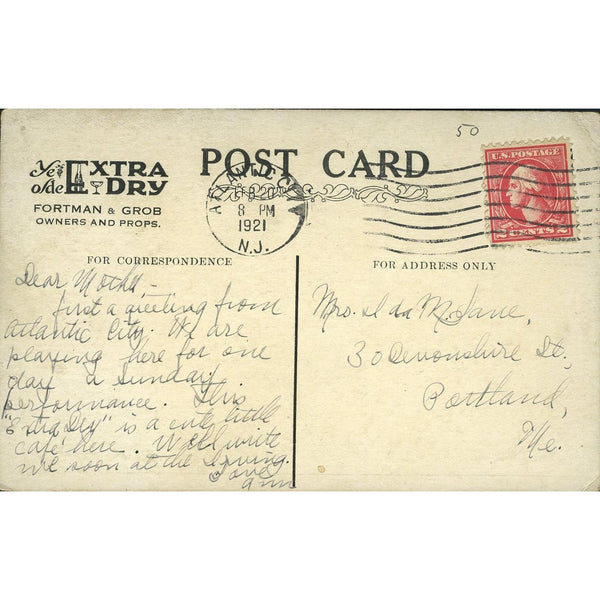 50
Ye olde EXTRA DRY
FORTMAN & GROB
OWNERS AND PROPS.
POST CARD
U.S. POSTAGE
2 CENTS 2
ATLANTIC CITY
20
8 PM
1921
N.J.
FOR CORRESPONDENCE
FOR ADDRESS ONLY
Dear Mother,-
first a greeting from
Atlantic City. We are
playing here for one
day a Sunday
performance. This
"Extra Dry" is a cute little
café here. Well write
me soon at the Irving.
Love
Ann
Mrs. Ida McLane,
30 Devonshire St,
Portland,
Me.